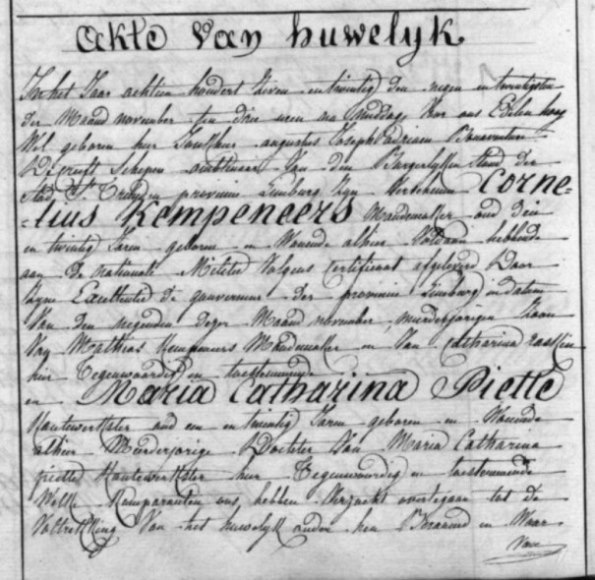 akte van huwelyk
In het Jaar achtien hondert Zeven entwintig den negen en twentigsten
der Maand november ten drie uren na Middag Voor ons Edelen hoog
Wel geboren heer augustus Joseph Adriaen Bonaventure
Schepen van den Burgerlyken Stand der
Stad St Truyden provincie Limburg Zyn Verschenen Corne-
-lius Kempeneers Mandemaker oud drie
en twintig Jaren geboren en Wonende alhier Voldaan hebbende
aan de nationale Militie Volgens Certificaat afgelevert Door
Zyne Excellentie de gouverneur der provincie Limburg in datum
Van den negenden dezer Maand november, minderjarigen Zoon
Van Mathias Kempeneers Mandemaker en Van Catharina
hier Tegenwoordig en toestemmende
en Maria Catharina Piette
oud een en twintig Jaren geboren en Wonende
alhier Minderjarige Dochter Van Maria Catharina
piette hier Tegenwoordig en toestemmende
Welke Komparanten ons hebben Verzocht overtegaan tot de
Voltrekking Van het huwelyk onder hen Beraamd en Waar
Van